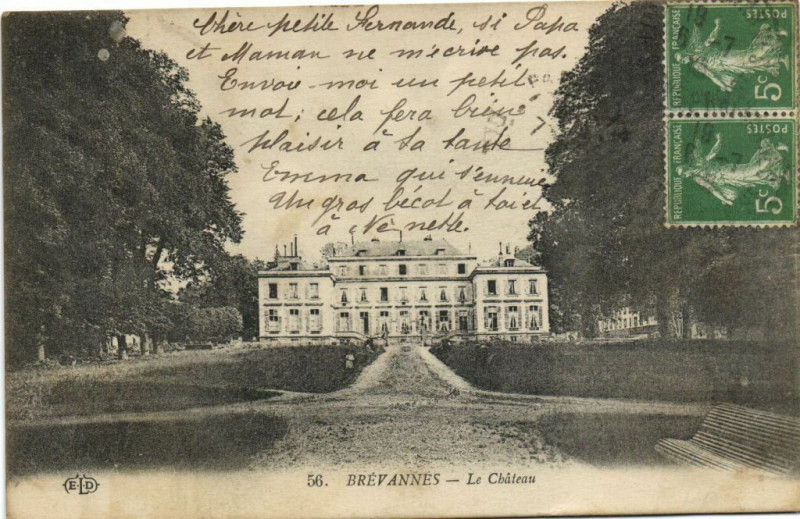 Chère petite Fernande, si Papa
et Maman ne m'écrive pas.
Envoie-moi un petit
mot; cela fera bien
plaisir à ta tante
Emma qui s'ennuie
Un gros bécot à toi et
à Nénette.
POSTES
RÉPUBLIQUE FRANÇAISE
5c
POSTES
RÉPUBLIQUE FRANÇAISE
5c
ELD
56. BRÉVANNES — Le Château